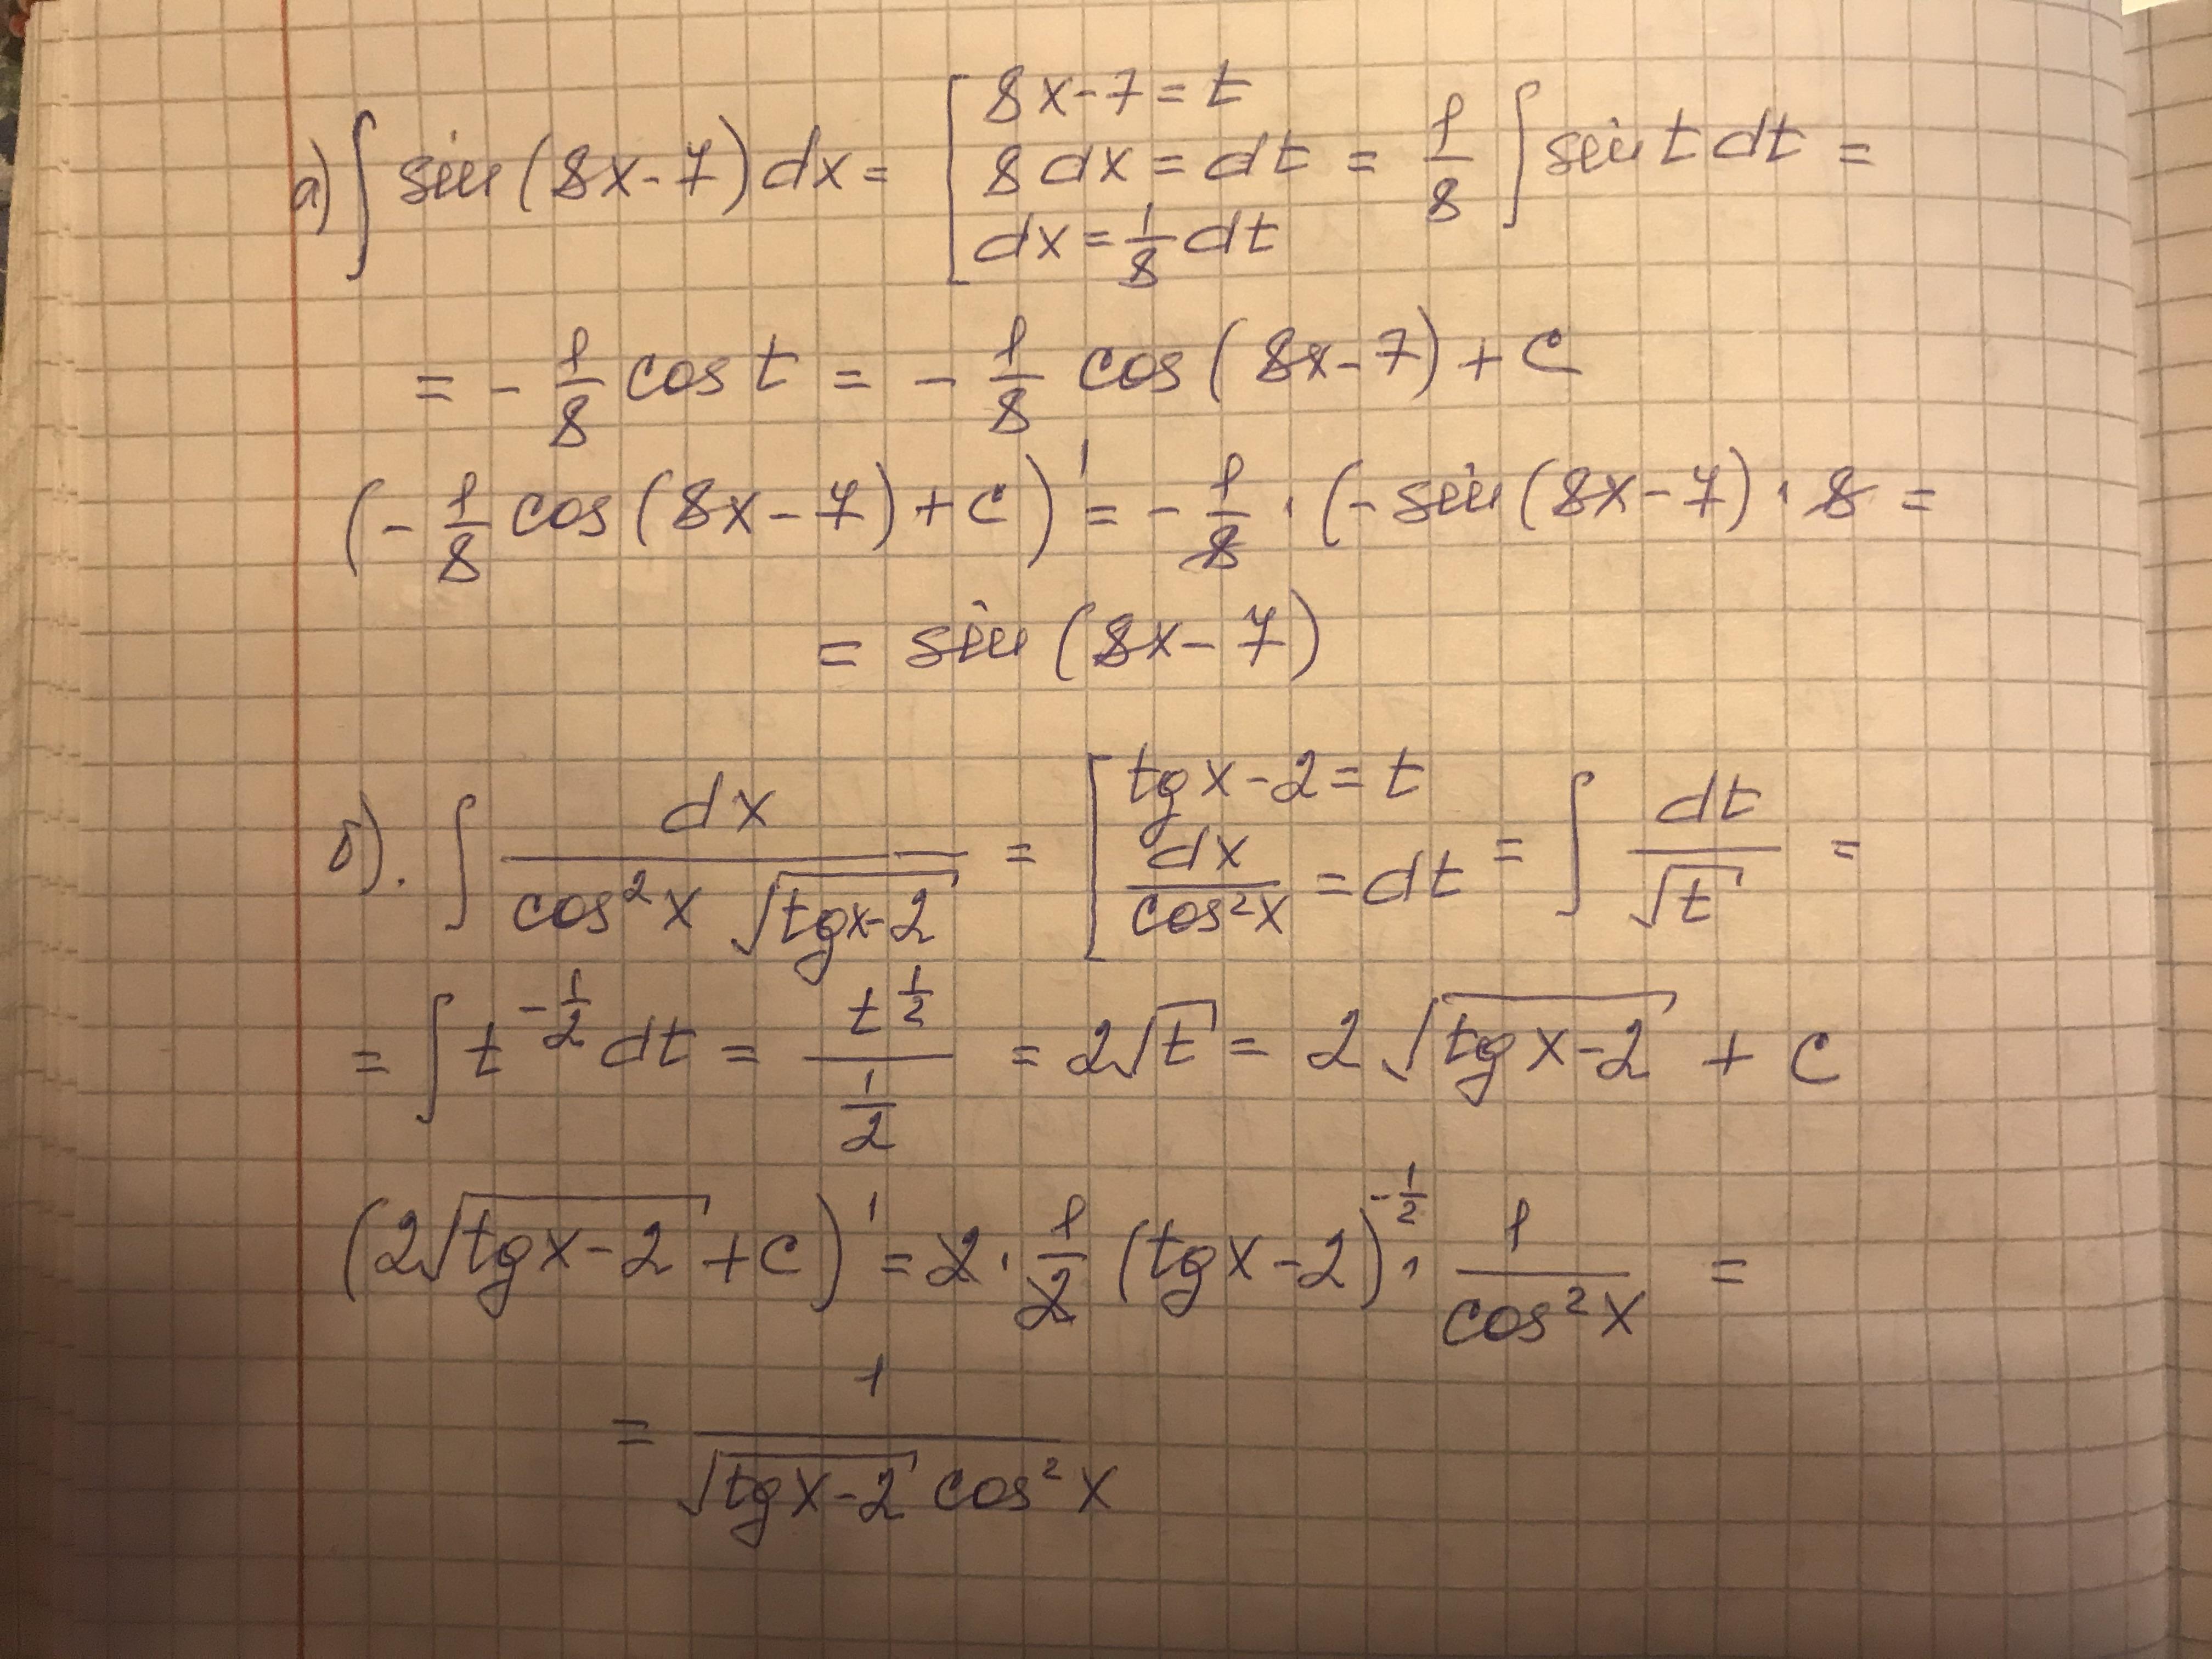 а) ∫ sin(8x-7)dx = [8x-7=t; 8dx=dt; dx=1/8 dt = 1/8 ∫ sin t dt =
= - 1/8 cos t = - 1/8 cos(8x-7)+C
(- 1/8 cos(8x-7)+C)' = - 1/8 · (-sin(8x-7) · 8 =
= sin(8x-7)
б). ∫ dx/(cos²x √(tgx-2)) = [tgx-2=t; dx/cos²x = dt = ∫ dt/√t =
= ∫ t^(-1/2) dt = t^(1/2)/(1/2) = 2√t = 2√(tgx-2) + C
(2√(tgx-2)+C)' = 2 · 1/2 (tgx-2)^(-1/2) · 1/cos²x =
= 1/(√(tgx-2) cos²x)